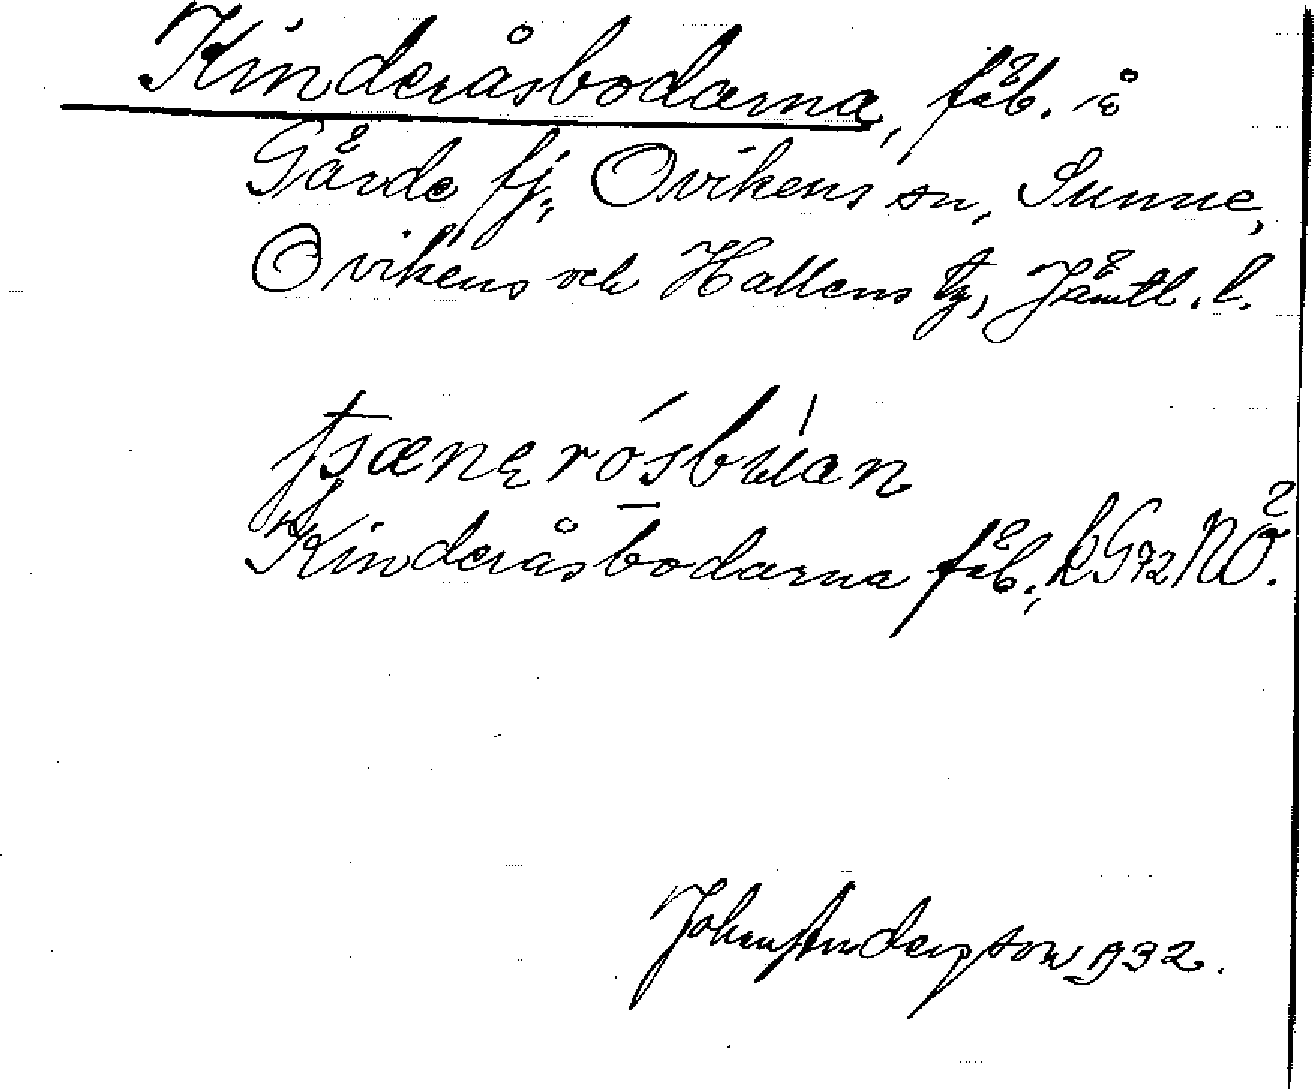 Kinderåsbodarna, fäb. i
Gärde fj., Ovikens sn, Sunne,
Ovikens och Hallens tg, Jämtl. l.
Kinderåsbodarna fäb., kG72NÖ.
John Andersson 1932.